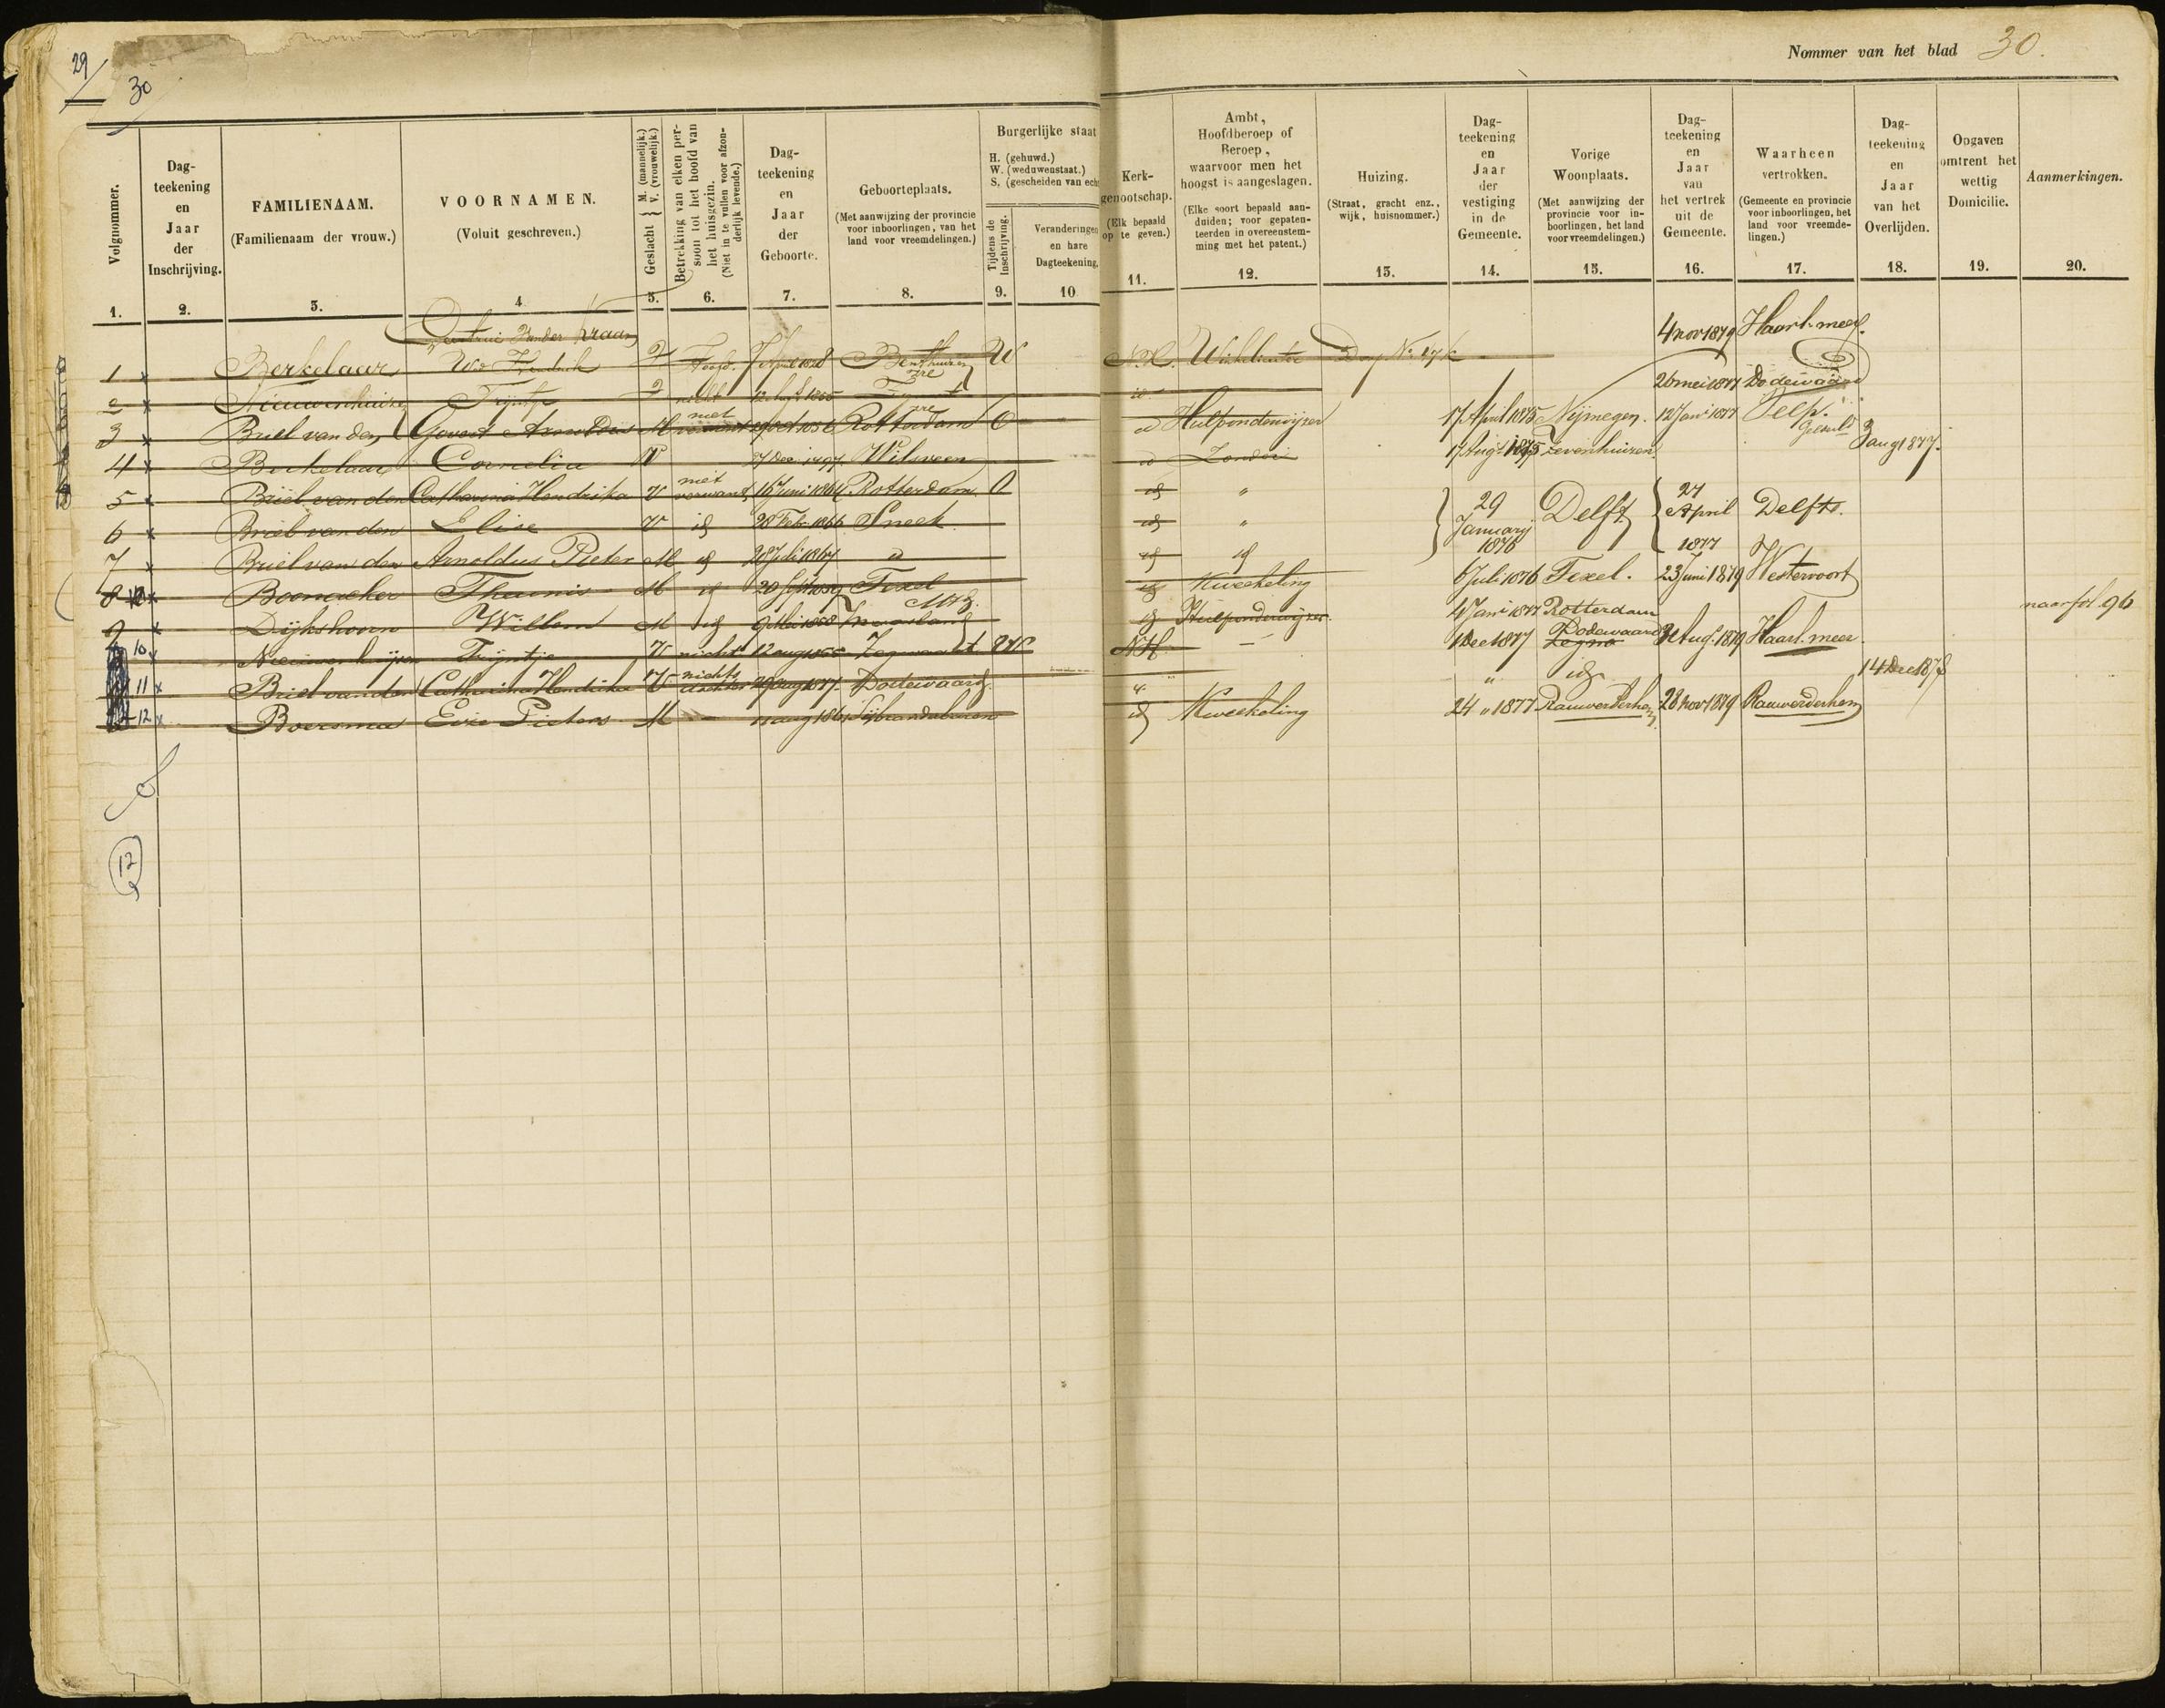 29
30
Nommer van het blad 30.
Volgnommer.
1.
Dag-
teekening
en
Jaar
der
Inschrijving.
2.
FAMILIENAAM.
(Familienaam der vrouw.)
3.
VOORNAMEN.
(Voluit geschreven.)
4
Geslacht { M. (mannelijk.)
V. (vrouwelijk.)
5.
Betrekking van elken per-
soon tot het hoofd van
het huisgezin.
(Niet in te vullen voor afzon-
derlijk levende.)
6.
Dag-
teekening
en
Jaar
der
Geboorte.
7.
Geboorteplaats.
(Met aanwijzing der provincie
voor inboorlingen, van het
land voor vreemdelingen.)
8.
Burgerlijke staat
H. (gehuwd.)
W. (weduwenstaat.)
S. (gescheiden van ech
Tijdens de
Inschrijving.
9.
Veranderingen
en hare
Dagteekening.
10
Kerk-
genootschap.
(Elk bepaald
op te geven.)
11.
Ambt,
Hoofdberoep of
Beroep,
waarvoor men het
hoogst is aangeslagen.
(Elke soort bepaald aan-
duiden; voor gepaten-
teerden in overeenstem-
ming met het patent.)
12.
Huizing.
(Straat, gracht enz.,
wijk, huisnommer.)
13.
Dag-
teekening
en
Jaar
der
vestiging
in de
Gemeente.
14.
Vorige
Woonplaats.
(Met aanwijzing der
provincie voor in-
boorlingen, het land
voor vreemdelingen.)
15.
Dag-
teekening
en
Jaar
van
het vertrek
uit de
Gemeente.
16.
Waarheen
vertrokken.
(Gemeente en provincie
voor inboorlingen, het
land voor vreemde-
lingen.)
17.
Dag-
teekening
en
Jaar
van het
Overlijden.
18.
Opgaven
omtrent het
wettig
Domicilie.
19.
Aanmerkingen.
20.
1 x Berkelaar Wed Hendrik V Hoofd. 7 April 1828 Benthuizen W N.H. Winkelierster Dorp No 4 nov 1879 Haarl. meer.
2 x Nieuwenhuizen Trijntje V nicht 1855 id 26 mei 1877 Dodewaard
3 x Briel van den Govert Arnoldus M niet verwant Oct 1856 Rotterdam O id Hulponderwijzer 17 April 1875 Nijmegen. 12 Juni 1877 Velp. Gelderld
4 x Berkelaar Cornelia V 27 Dec 1797 Wilsveen id Zonder 17 Aug 1875 Zevenhuizen. 3 aug 1877.
5 x Briel van den Catharina Hendrika V niet verwant 16 Juni 1864 Rotterdam O id " 29 Januarij 1876 Delft 27 April 1877 Delft.
6 x Briel van den Elise V id 28 Feb. 1866 Sneek id "
7 x Briel van den Arnoldus Pieter M id 28 Juli 1867 id id id
8 x Theunis M id 20 Sept 1859 Texel id Kweekeling 6 Juli 1876 Texel. 23 Juni 1879 Westervoort
9 x Dijkshoorn Willem M id 1858 Maasland id Hulponderwijzer. Juni 1877 Rotterdam naar fol 96
10 x Nieuwenhuijzen Trijntje V nicht 12 aug 1855 Zegwaart NH. — 1 Dec 1877 Dodewaard Aug. 1879 Haarl. meer
11 x Briel van den Catharina Hendrika V nichts dochter 29 Aug 1877 Dodewaard " " id 14 Dec 1878
12 x Boersma Eize Pieters M — 11 aug 1861 Sijbrandaburen id Kweekeling 24 " 1877 Rauwerderhem 28 nov 1879 Rauwerderhem
12